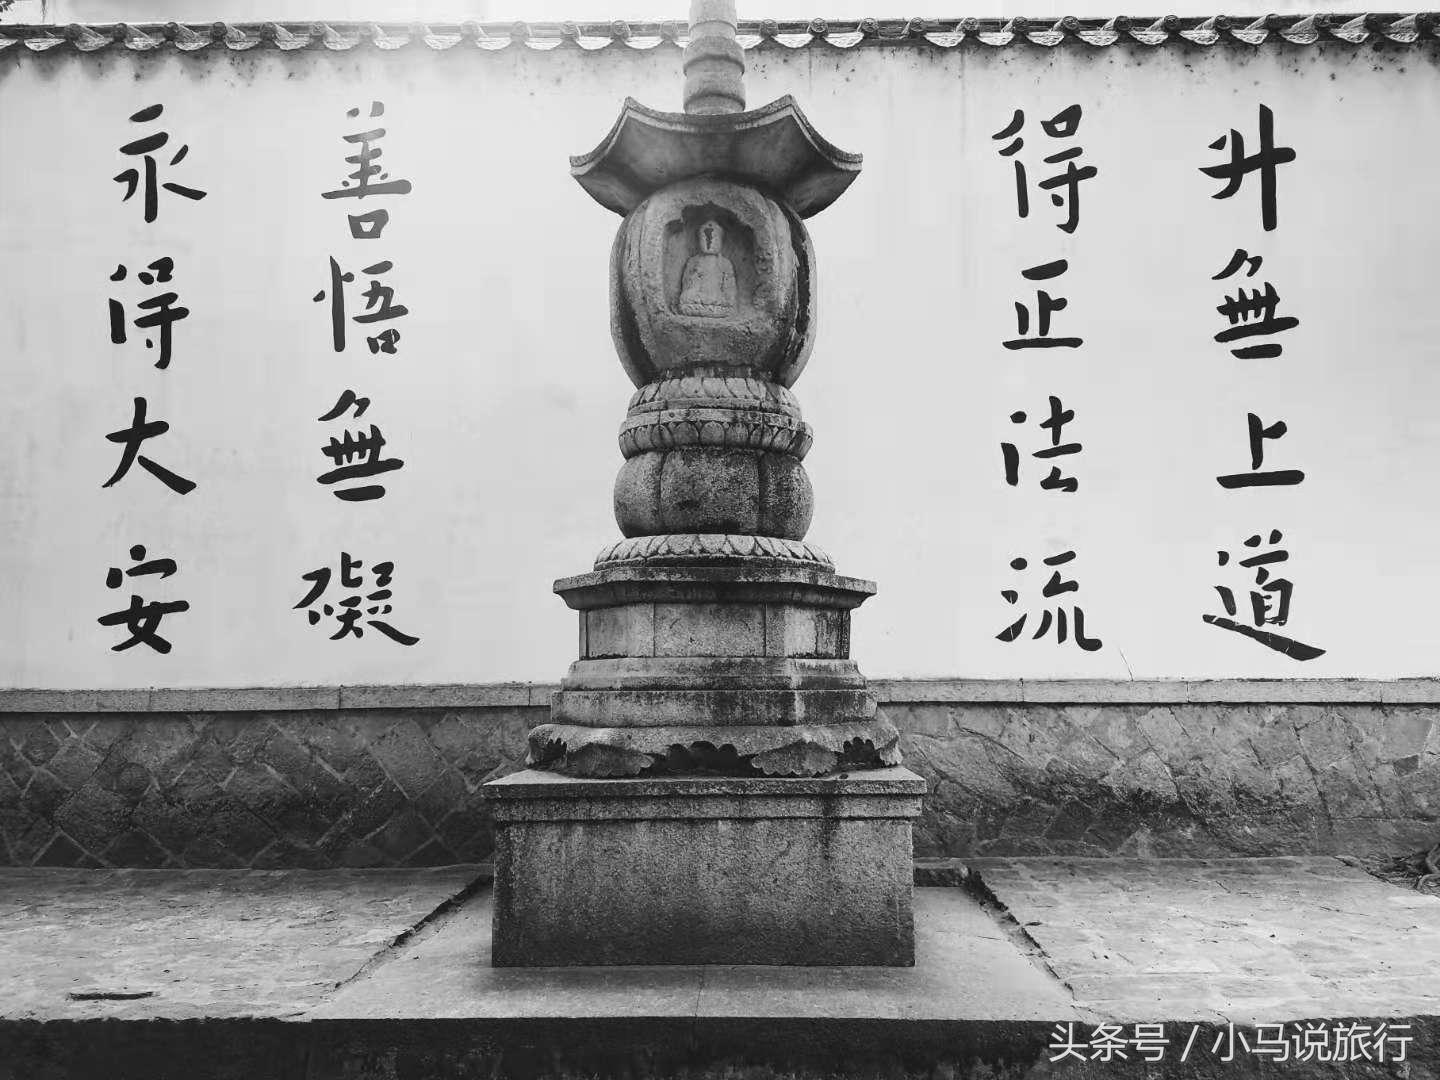 升無上道
得正法流
善悟無礙
永得大安
头条号 / 小马说旅行